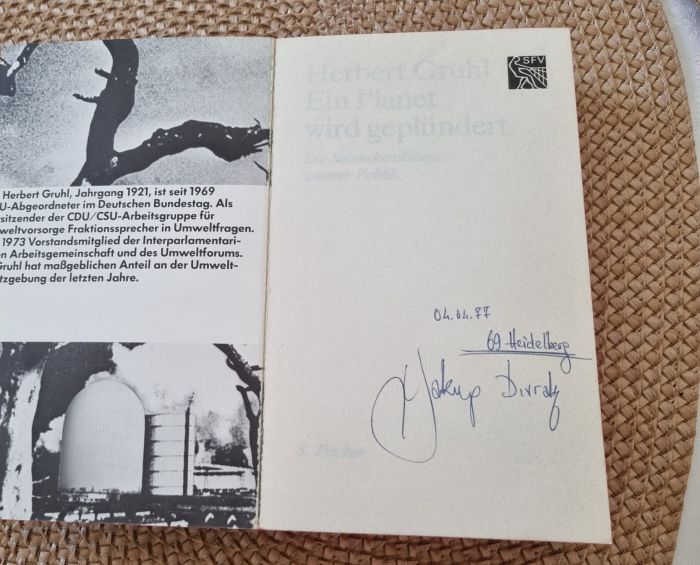 Herbert Gruhl, Jahrgang 1921, ist seit 1969
U-Abgeordneter im Deutschen Bundestag. Als
sitzender der CDU/CSU-Arbeitsgruppe für
weltvorsorge Fraktionssprecher in Umweltfragen.
1973 Vorstandsmitglied der Interparlamentari-
n Arbeitsgemeinschaft und des Umweltforums.
Gruhl hat maßgeblichen Anteil an der Umwelt-
tzgebung der letzten Jahre.
SFV
Herbert Gruhl
Ein Planet
wird geplündert
Die Schreckensbilanz
unserer Politik
04.04.77
69 Heidelberg
Yakup
S. Fischer